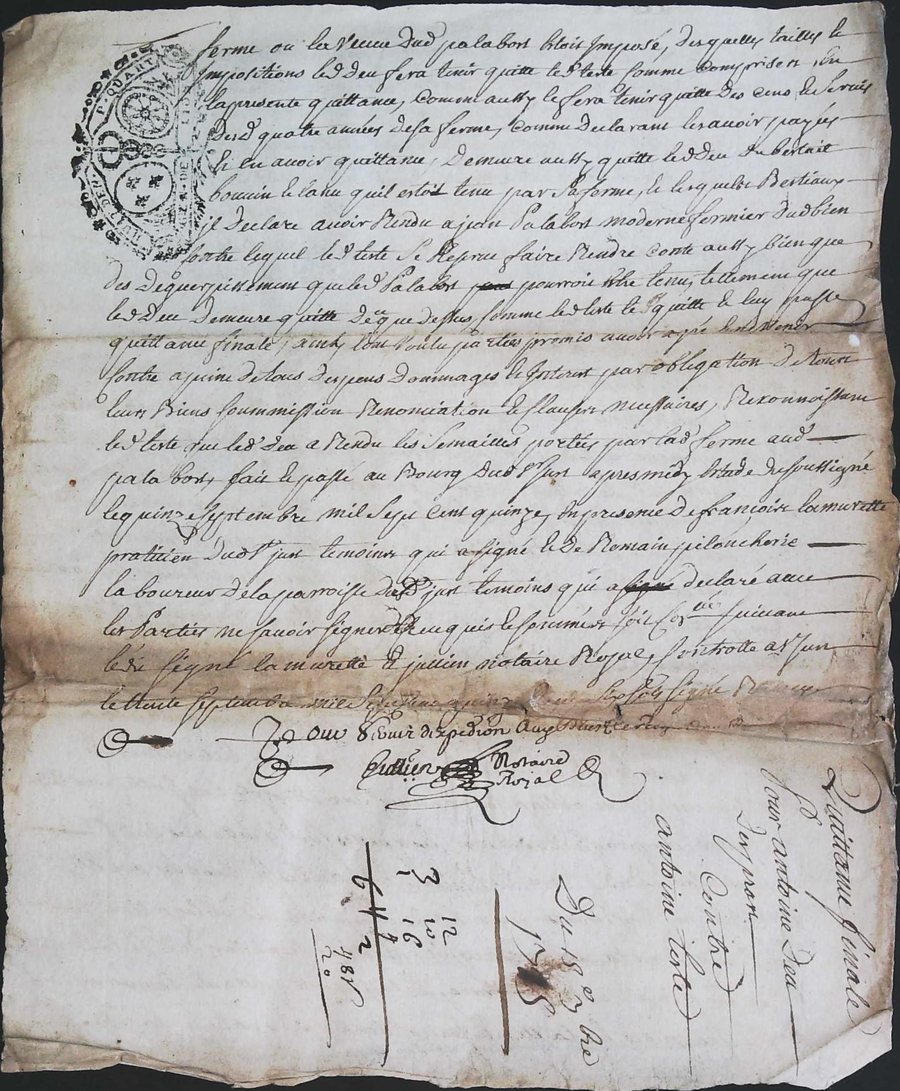 ferme ou la veuve dud palabost estoit imposé, desquelles tailles et
impositions led deu fera tenir quitte led teste comme comprises en
la presente quittance, comme aussy le fera tenir quitte des cens et servis
desd quatre années de sa ferme, comme declarant les avoir payés
et en avoir quittance, demeure aussy quitte led deu du bestail
bouvin et lanu quil estoit tenu par sa ferme, et lesquels bestiaux
il declare avoir rendu a jean palabost moderne fermier dud bien
contre lequel led teste se reserve faire rendre conte aussy bien que
des deguerpissement que led palabost pourroit estre tenu, tellement que
led deu demeure quitte de ce que dessus, comme led teste le quitte et luy passe
quittance finale, ainsy lont voulu parties promis avoir agréé
contre a peine de tous despens dommages et interest par obligation de tous
leurs biens soummission renonciation et clauses necessaires, reconnoissant
led teste que led deu a rendu les semailles portées par lad ferme aud
palabost, fait et passé au bourg dud st just apres midy estude du soussigné
le quinze septembre mil sept cent quinze, en presence de francois lamurette
praticien dud st just temoins qui a signé et de Romain piloncherie
laboureur de la parroisse dud st just temoins qui a declaré avec
les parties ne savoir signer de ce enquis et sommés suivant
led signé lamurette et jullien notaire Royal, controlle a st jun
le trente septembre mil sept cent quinze signé
pour servir dexpedion
jullien Notaire
Royal
Quittance finale
pour antoine deu
despart
Contre
antoine teste
Du 15 7bre
1715
P. QUART
12
3 10
1 16 8
6 4 2
485
20